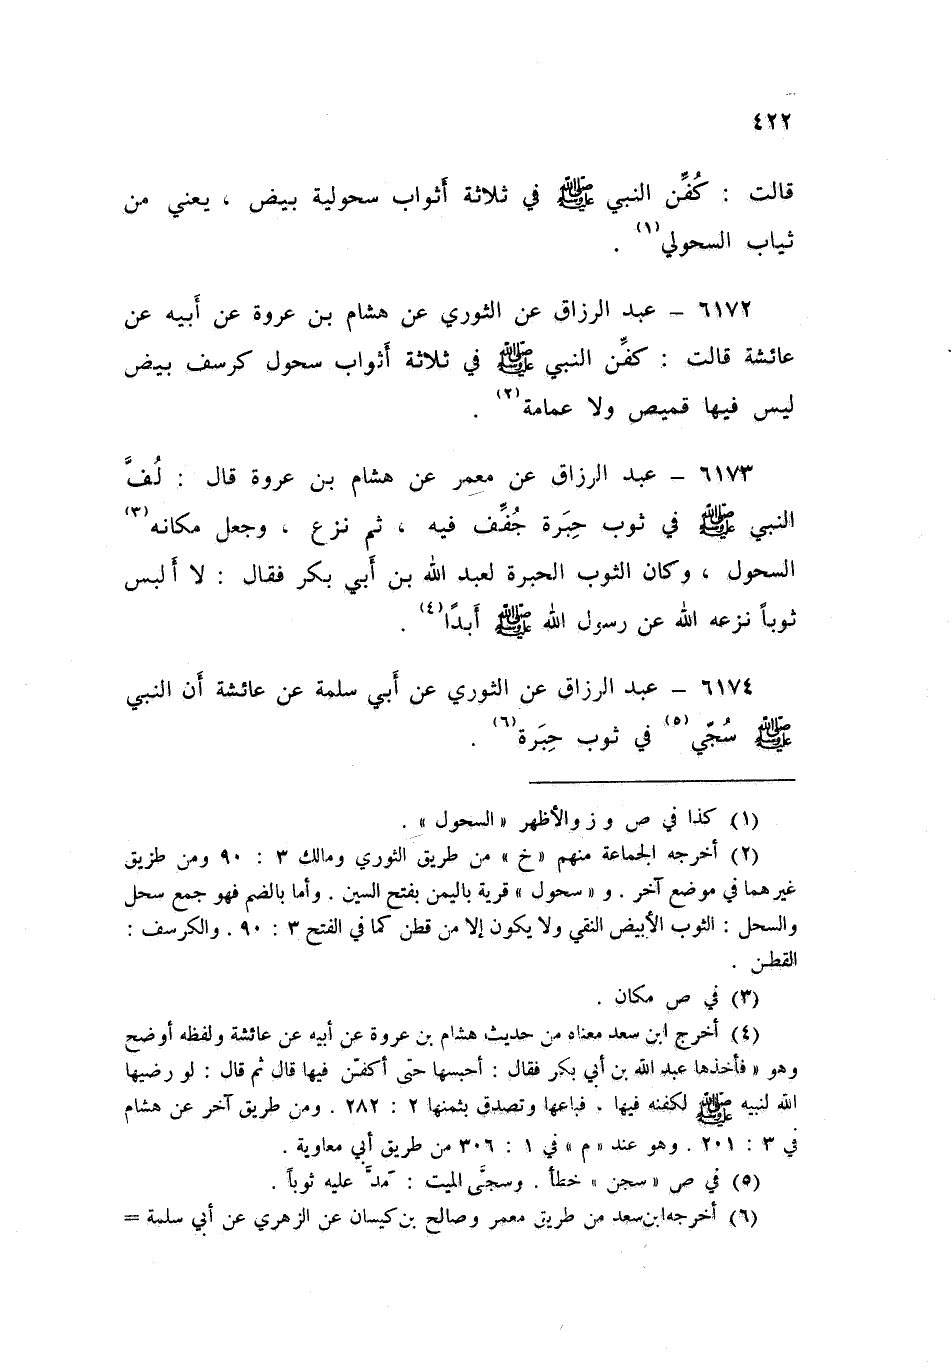 ٤٢٢
قالت : كُفِّن النبي ﷺ في ثلاثة أثواب سحولية بيض ، يعني من
ثياب السحولي(١) .
٦١٧٢ – عبد الرزاق عن الثوري عن هشام بن عروة عن أبيه عن
عائشة قالت : كفِّن النبي ﷺ في ثلاثة أثواب سحول كرسف بيض
ليس فيها قميص ولا عمامة(٢) .
٦١٧٣ – عبد الرزاق عن معمر عن هشام بن عروة قال : لُفَّ
النبي ﷺ في ثوب حِبَرة جُفِّف فيه ، ثم نزع ، وجعل مكانه(٣)
السحول ، وكان الثوب الحبرة لعبد الله بن أبي بكر فقال : لا ألبس
ثوباً نزعه الله عن رسول الله ﷺ أبدًا(٤) .
٦١٧٤ – عبد الرزاق عن الثوري عن أبي سلمة عن عائشة أن النبي
ﷺ سُجّي(٥) في ثوب حِبَرة(٦) .
(١) كذا في ص و ز والأظهر «السحول» .
(٢) أخرجه الجماعة منهم «خ» من طريق الثوري ومالك ٣ : ٩٠ ومن طريق
غيرهما في موضع آخر . و «سحول» قرية باليمن بفتح السين . وأما بالضم فهو جمع سحل
والسحل : الثوب الأبيض النقي ولا يكون إلا من قطن كما في الفتح ٣ : ٩٠ . والكرسف :
القطن .
(٣) في ص مكان .
(٤) أخرج ابن سعد معناه من حديث هشام بن عروة عن أبيه عن عائشة ولفظه أوضح
وهو «فأخذها عبد الله بن أبي بكر فقال : أحبسها حتى أكفّن فيها قال ثم قال : لو رضيها
الله لنبيه ﷺ لكفنه فيها . فباعها وتصدق بثمنها ٢ : ٢٨٢ . ومن طريق آخر عن هشام
في ٣ : ٢٠١ . وهو عند «م» في ١ : ٣٠٦ من طريق أبي معاوية .
(٥) في ص «سجن» خطأ . وسجَّى الميت : مدَّ عليه ثوباً .
(٦) أخرجه ابن سعد من طريق معمر وصالح بن كيسان عن الزهري عن أبي سلمة =